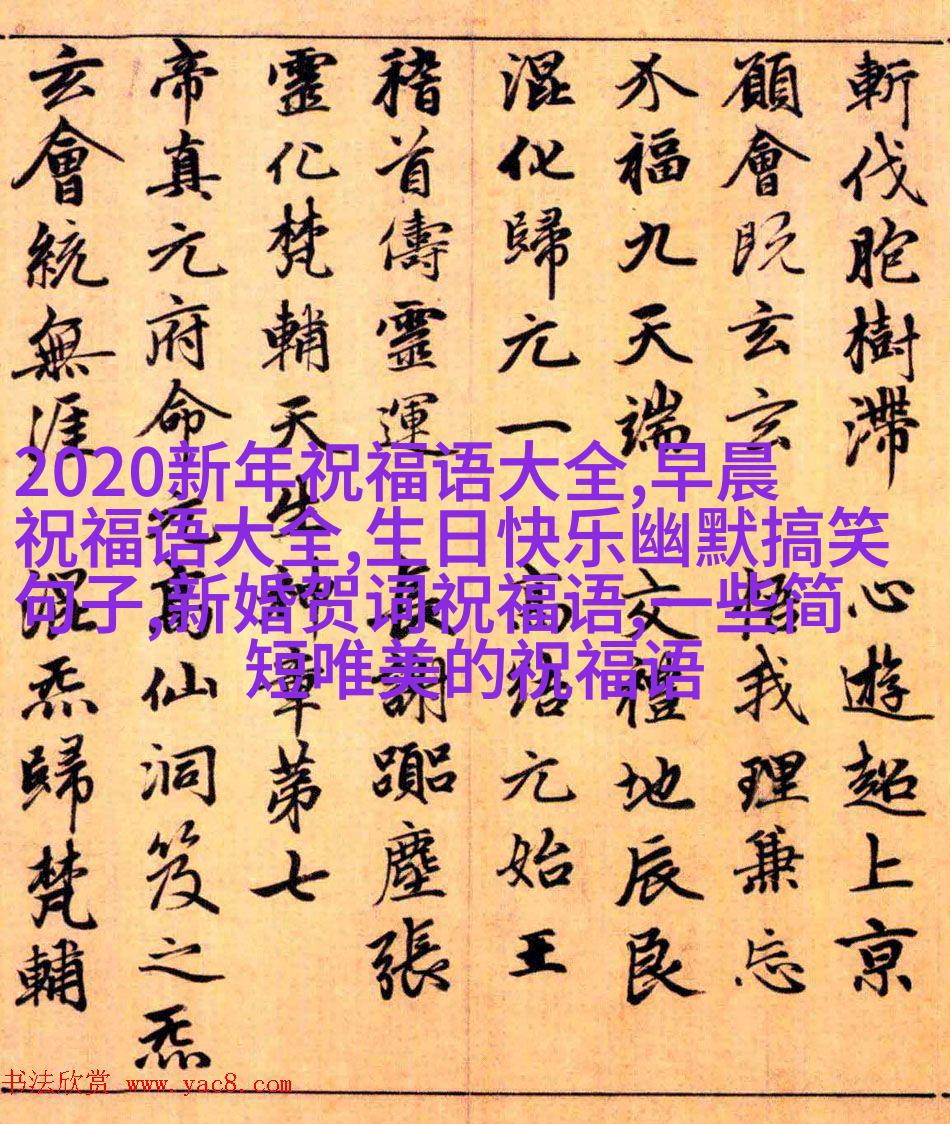 斬伐胞樹滯 心遊超上京
願會既玄玄 相我理兼忘
介福九天端 交禮地辰良
混化歸元一 高結元始王
稽首儔靈運 長謝躡塵張
靈化梵輔天生神章第七
帝真元府命元高仙洞笈之炁
玄會統無涯 混炁歸梵輔
2020新年祝福语大全,早晨
祝福语大全,生日快乐幽默搞笑
句子,新婚贺词祝福语,一些简
短唯美的祝福语
书法欣赏 www.yac8.com